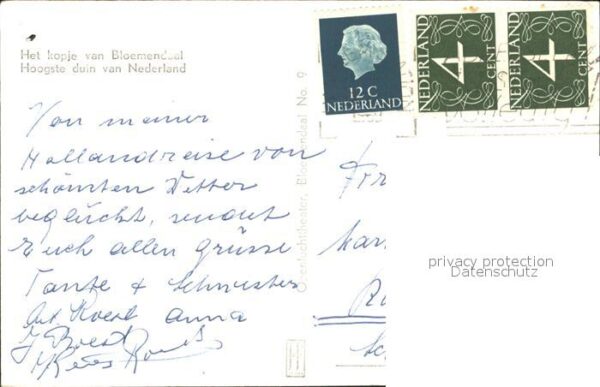 Het kopje van Bloemendaal
Hoogste duin van Nederland
12 C
NEDERLAND
NEDERLAND
4
CENT
NEDERLAND
4
CENT
Von meiner
Hollandreise von
schönsten Wetter
beglückt, sendet
Euch allen Grüsse
Tante & Schwester
Anna
Openluchttheater, Bloemendaal No. 9
privacy protection
Datenschutz